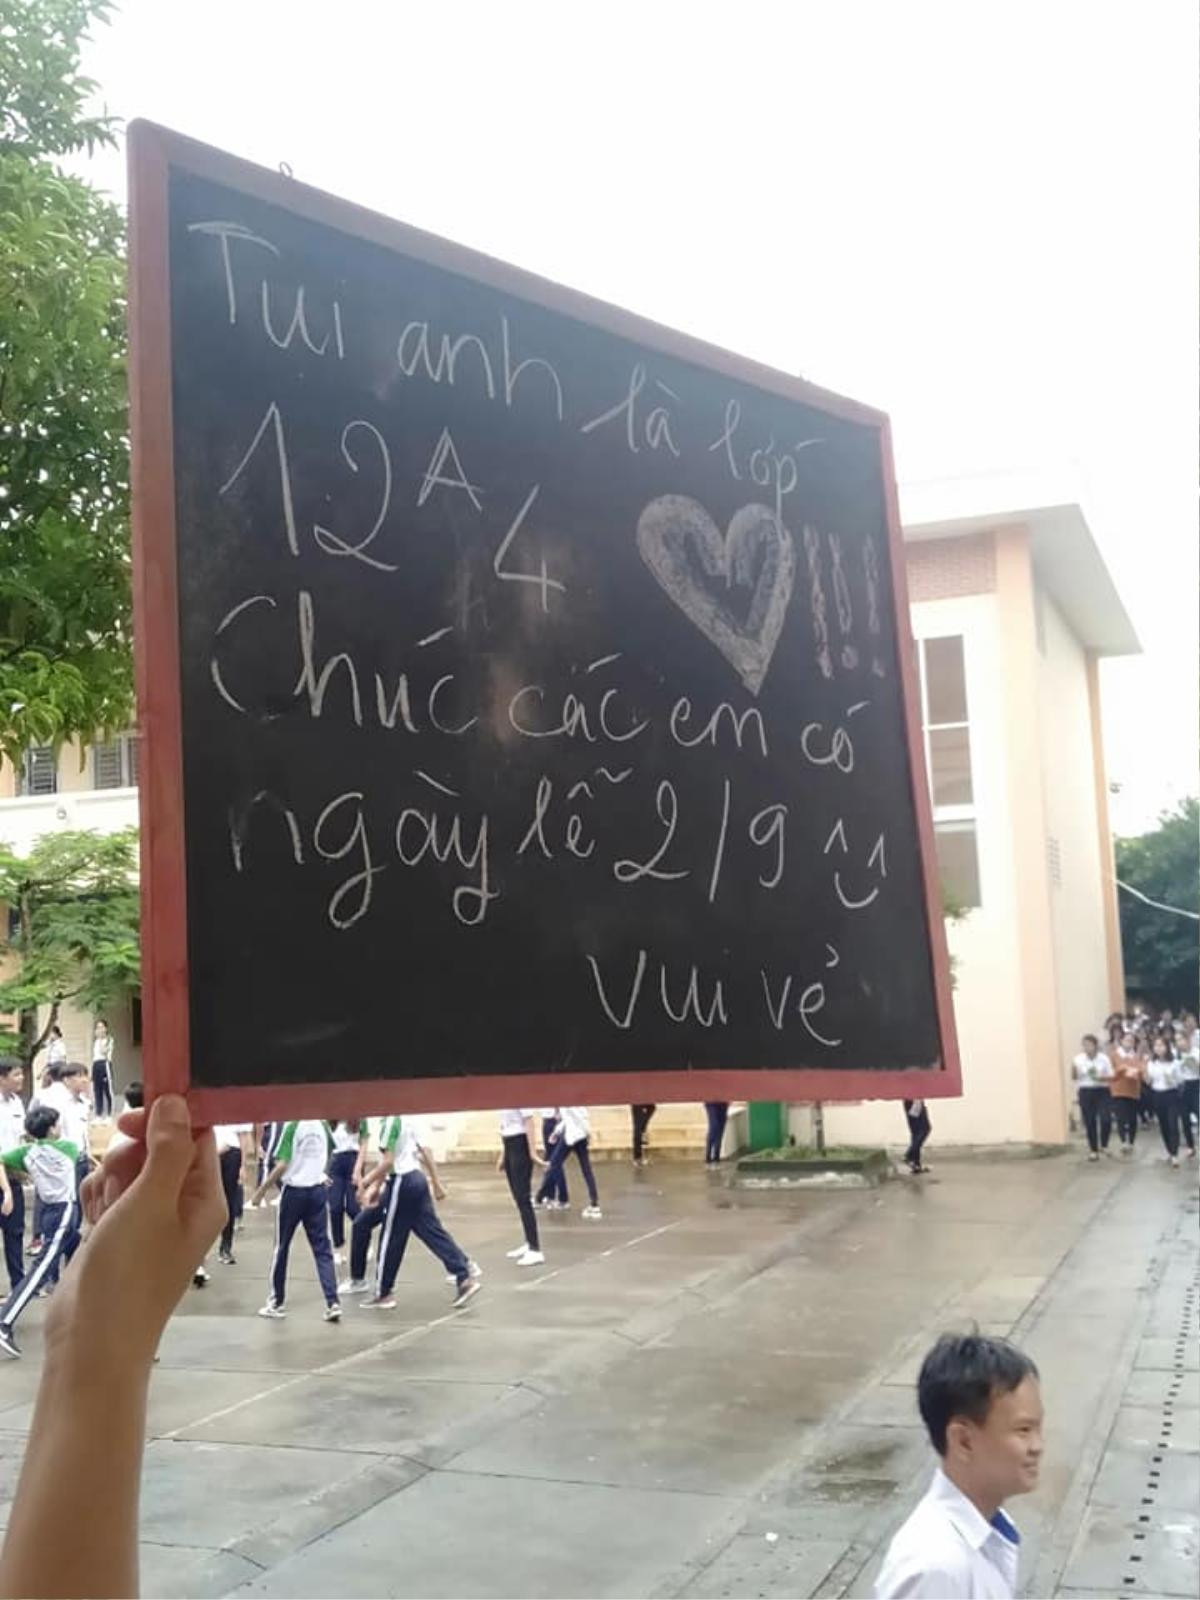 Tui anh là lớp
12A4 !!!
Chúc các em có
ngày lễ 2/9 ^^
vui vẻ